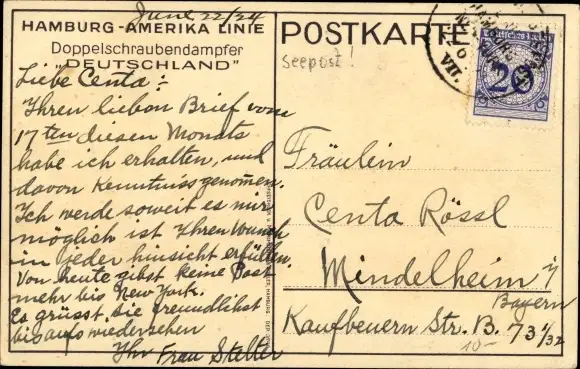 June 22/24
HAMBURG-AMERIKA LINIE
Doppelschraubendampfer
"DEUTSCHLAND"
Liebe Centa:
Ihren lieben Brief vom
17ten diesen Monats
habe ich erhalten, und
davon Kenntniss genomen.
Ich werde soweit es mir
möglich ist Ihren Wunch
in jeder hinsicht erfüllen.
Von heute gibst keine Post
mehr bis New York.
Es grüsst Sie freundlichst
bis aufs wiedersehen
Ihr Frau Stelter
POSTKARTE
Seepost!
20
Fräulein
Centa Rössl
Mindelheim i/
Bayern
Kaufbeuern Str. B. 73 1/32
10-